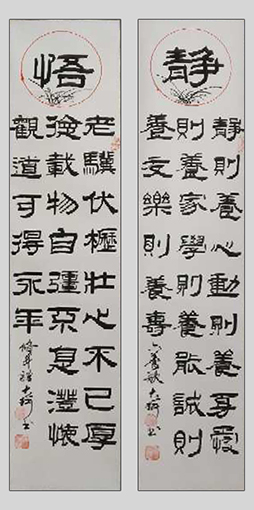 靜
靜則養心動則養身愛
則養家學則養能誠則
養友樂則養壽
悟
老驥伏櫪壯心不已厚
德載物自彊不息澄懷
觀道可得永年